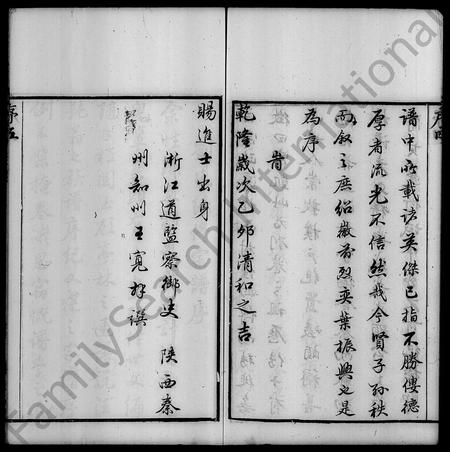 序四
譜中所載諸英傑已指不勝僂德
厚者流光不信然哉今賢子孫秩
而叙之庶紹徽前烈奕葉振興之是
為序
旹
乾隆歲次乙卯清和之吉
賜進士出身
浙江道監察御史 陝西秦
州知州王寬 撰
序五
FamilySearch International